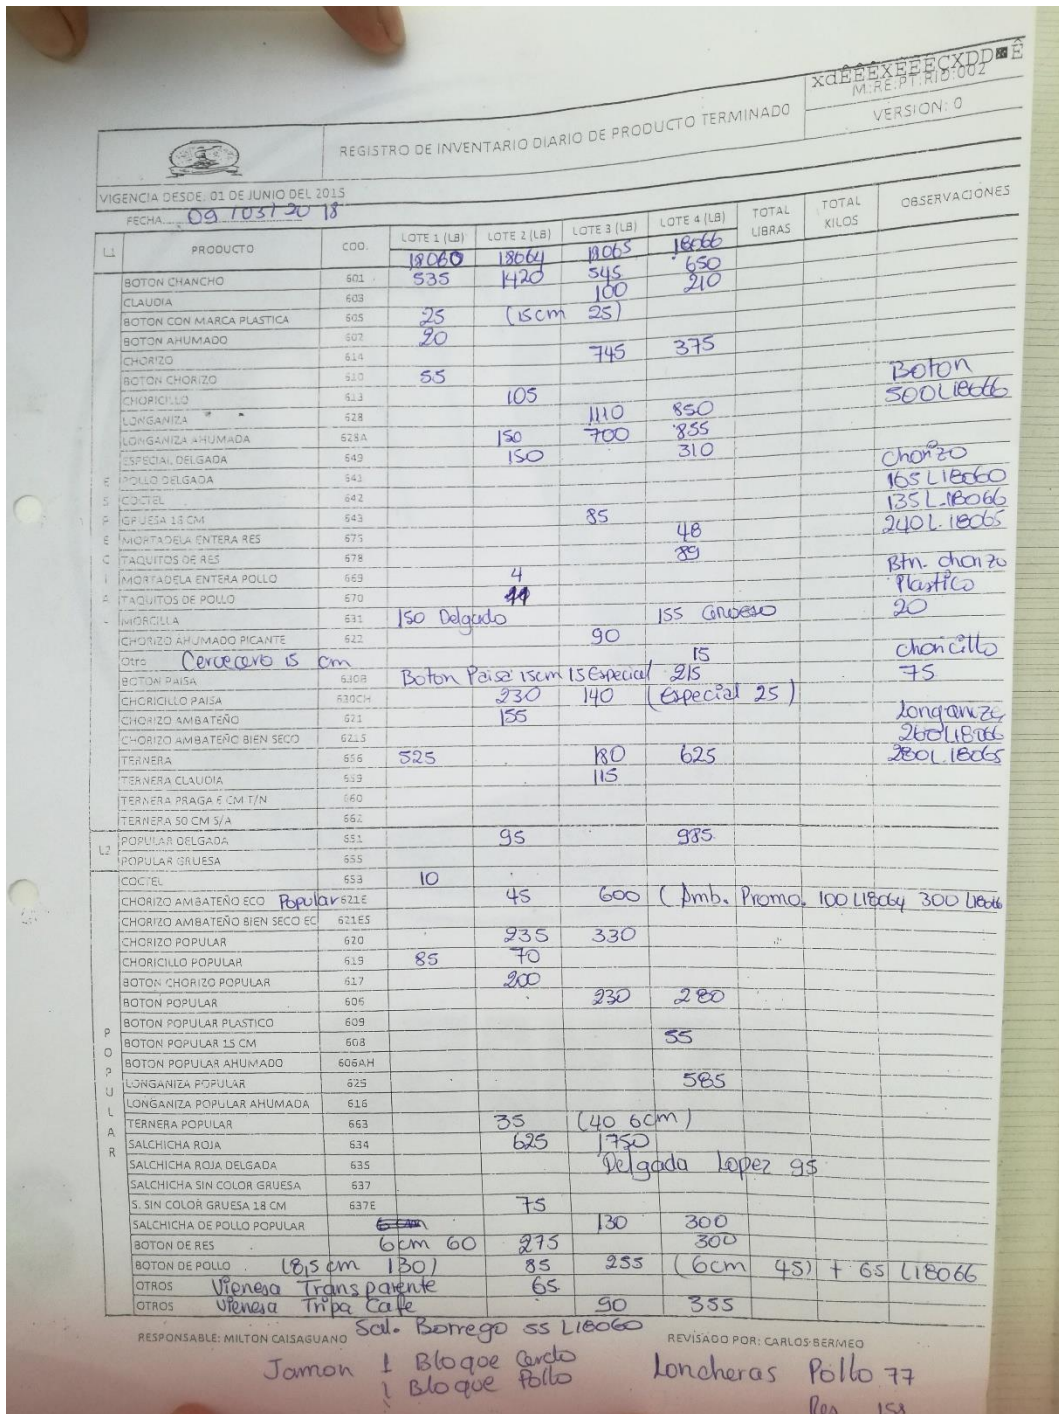 xdÊÊÊXÊÊÊÇXDD■Ê
M:RE.PT:RID:002
REGISTRO DE INVENTARIO DIARIO DE PRODUCTO TERMINADO
VERSION: 0
VIGENCIA DESDE: 01 DE JUNIO DEL 2015
FECHA 09/03/2018
L1 PRODUCTO COD. LOTE 1 (LB) LOTE 2 (LB) LOTE 3 (LB) LOTE 4 (LB) TOTAL LIBRAS TOTAL KILOS OBSERVACIONES
18060 18064 18065 18066
BOTON CHANCHO 601 535 1420 545 650
CLAUDIA 603 100 210
BOTON CON MARCA PLASTICA 605 25 (15cm 25)
BOTON AHUMADO 607 20
CHORIZO 614 745 375
BOTON CHORIZO 610 55 Boton
CHORICILLO 613 105 500L18066
LONGANIZA 628 1110 850
LONGANIZA AHUMADA 628A 150 700 855
ESPECIAL DELGADA 649 150 310 Chorizo
POLLO DELGADA 641 165 L18060
COCTEL 642 135 L.18066
GRUESA 18 CM 643 85 240 L.18065
MORTADELA ENTERA RES 675 48
TAQUITOS DE RES 678 89 Btn. chorizo
MORTADELA ENTERA POLLO 669 4 Plastico
TAQUITOS DE POLLO 670 44 20
MORCILLA 631 150 Delgado 155 Grueso
CHORIZO AHUMADO PICANTE 622 90 choricillo
Otro Cervecero 15 cm 15 75
BOTON PAISA 630B Boton Paisa 15cm 15 Especial 215
CHORICILLO PAISA 630CH 230 140 (Especial 25)
CHORIZO AMBATEÑO 621 155 Longaniza
CHORIZO AMBATEÑO BIEN SECO 621S 260L18066
TERNERA 656 525 180 625 280L.18065
TERNERA CLAUDIA 659 115
TERNERA PRAGA 6 CM T/N 660
TERNERA 50 CM S/A 662
L2 POPULAR DELGADA 651 95 985
POPULAR GRUESA 655
COCTEL 653 10
CHORIZO AMBATEÑO ECO Popular 621E 45 600 (Amb. Promo. 100 L18064 300 L18066
CHORIZO AMBATEÑO BIEN SECO EC 621ES
CHORIZO POPULAR 620 235 330
CHORICILLO POPULAR 619 85 70
BOTON CHORIZO POPULAR 617 200
BOTON POPULAR 606 230 280
BOTON POPULAR PLASTICO 609
BOTON POPULAR 15 CM 608 55
BOTON POPULAR AHUMADO 606AH
LONGANIZA POPULAR 625 585
LONGANIZA POPULAR AHUMADA 616
TERNERA POPULAR 663 35 (40 6cm)
SALCHICHA ROJA 634 625 1750
SALCHICHA ROJA DELGADA 635 Delgada Lopez 95
SALCHICHA SIN COLOR GRUESA 637
S. SIN COLOR GRUESA 18 CM 637E 75
SALCHICHA DE POLLO POPULAR 6 cm 130 300
BOTON DE RES 6cm 60 275 300
BOTON DE POLLO (8,5 cm 130) 85 255 (6cm 45) + 65 L18066
OTROS Vienesa Transparente 65
OTROS Vienesa Tripa Cafe 90 355
POPULAR
RESPONSABLE: MILTON CAISAGUANO Sal. Borrego 55 L18060 REVISADO POR: CARLOS BERMEO
Jamon 1 Bloque Cerdo Loncheras Pollo 77
1 Bloque Pollo Res 158